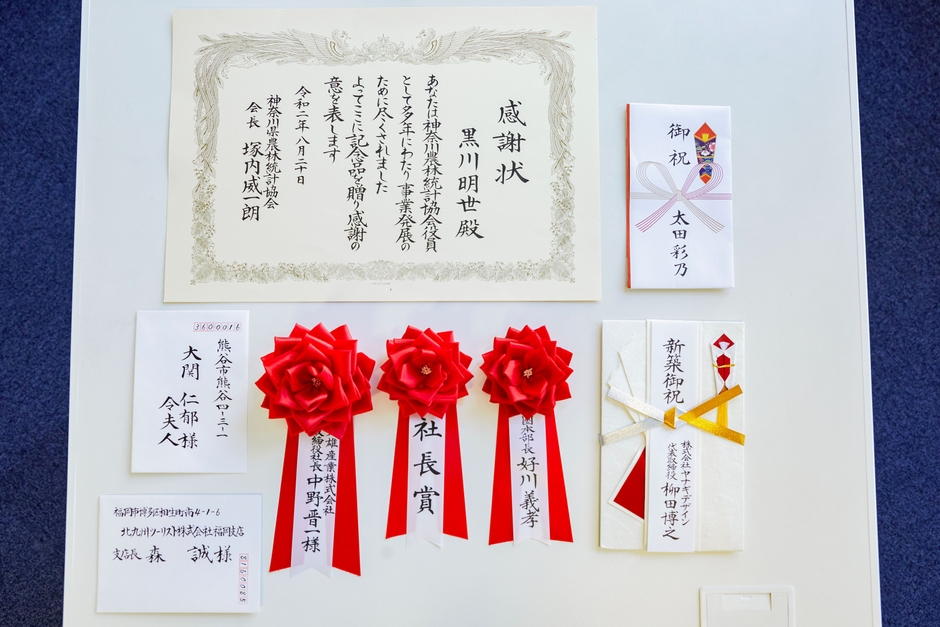 感謝状
黒川明世殿
あなたは神奈川農林統計協会役員
として多年にわたり事業発展の
ために尽くされました
よってここに記念品を贈り感謝の
意を表します
令和二年八月二十日
神奈川県農林統計協会
会長 塚内威一朗
御祝
太田彩乃
3600016
熊谷市熊谷四-三-一
大関 仁郁様
令夫人
雄産業株式会社
締役社長 中野晋一様
社長賞
本部長 好川義孝
新築御祝
株式会社ヤナギデザイン
代表取締役 柳田博之
福岡市博多区相生町南4-1-6
北九州ツーリスト株式会社福岡支店
支店長 森 誠様
8160085